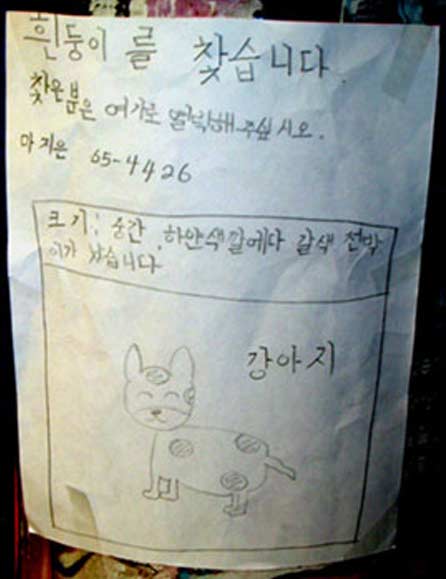 흰둥이를 찾습니다
찾은분은 여기로 연락해 주십시오.
마지은 65-4426
크기: 중간, 하얀색깔에다 갈색 점박
이가 났습니다.
강아지